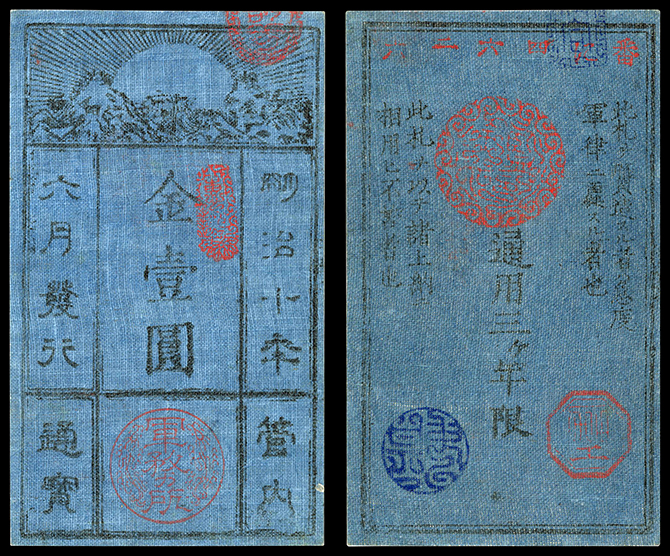 明治十年
管内
金壹圓
軍務所
六月發行
通寶
此札ヲ贋造スル者ハ急度
軍律ニ處スル者也
通用三ヶ年限
此札ヲ以テ諸上納ニ
相用ヒ不苦者也